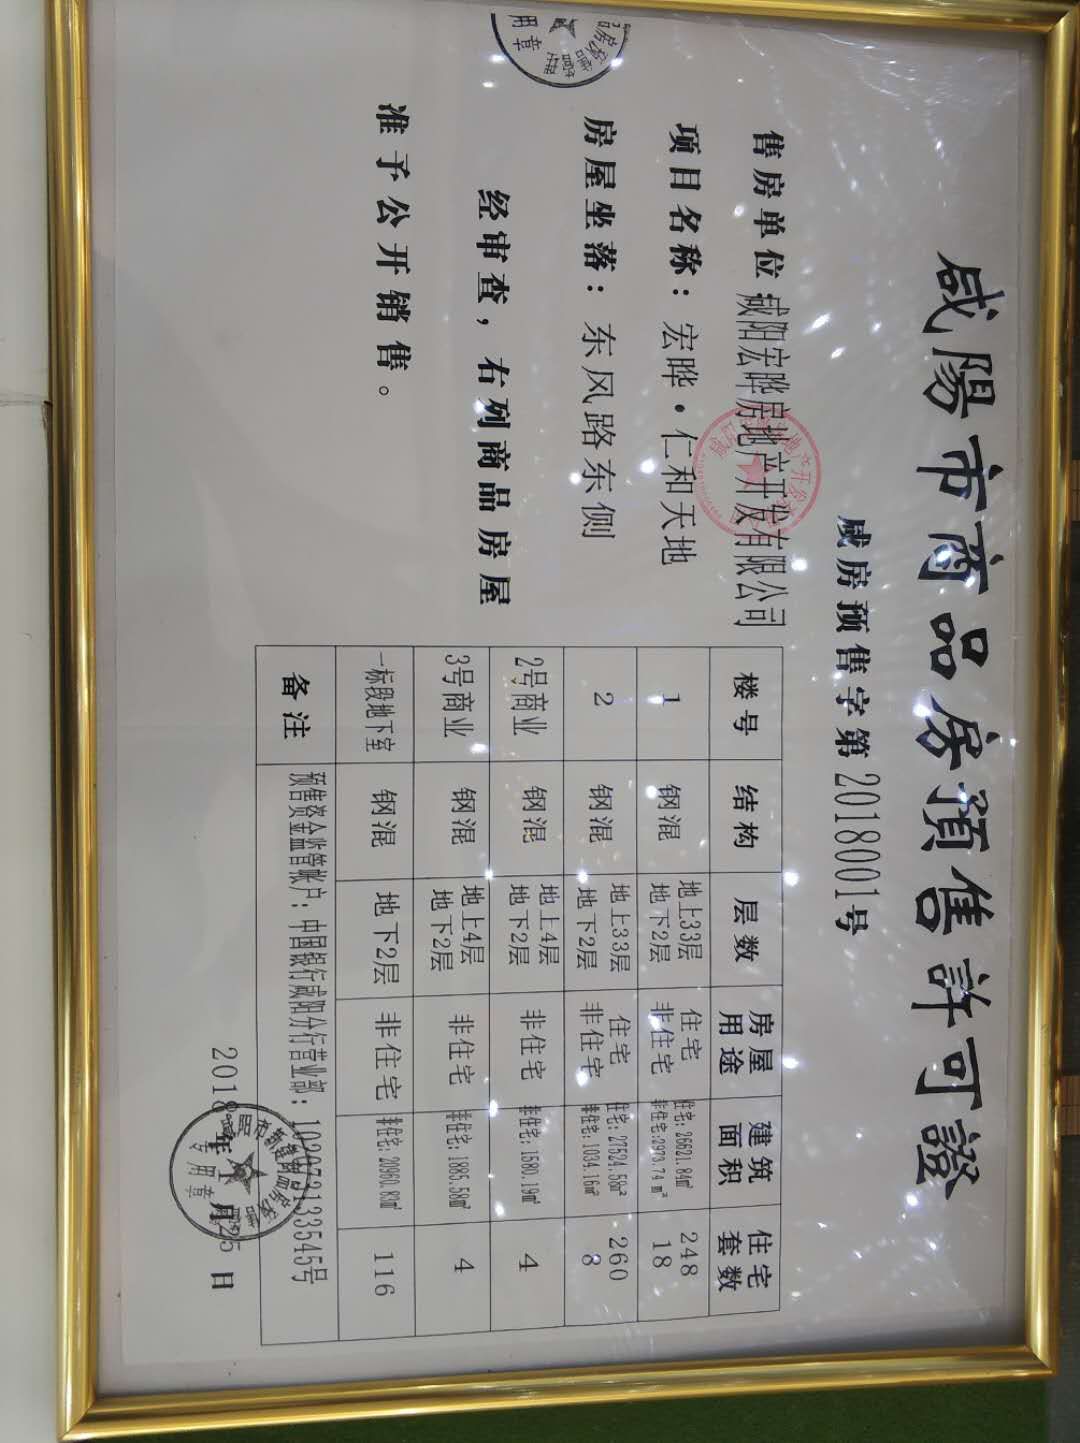 咸陽市商品房預售許可證
咸房预售字第2018001号
售房单位:咸阳宏晔房地产开发有限公司
项目名称：宏晔·仁和天地
房屋坐落：东风路东侧
经审查，右列商品房屋
准予公开销售。
楼号 结构 层数 房屋用途 建筑面积 住宅套数
1 钢混 地上33层 地下2层 住宅 非住宅 住宅:26621.84㎡ 非住宅:2973.74㎡ 248 18
2 钢混 地上33层 地下2层 住宅 非住宅 住宅:27524.58㎡ 非住宅:1034.16㎡ 260 8
2号商业 钢混 地上4层 地下2层 非住宅 非住宅:1580.19㎡ 4
3号商业 钢混 地上4层 地下2层 非住宅 非住宅:1885.58㎡ 4
一标段地下室 钢混 地下2层 非住宅 非住宅:20960.83㎡ 116
备注 预售资金监管帐户：中国银行咸阳分行营业部：102072133545号
2018年 月25日
专用章
用章